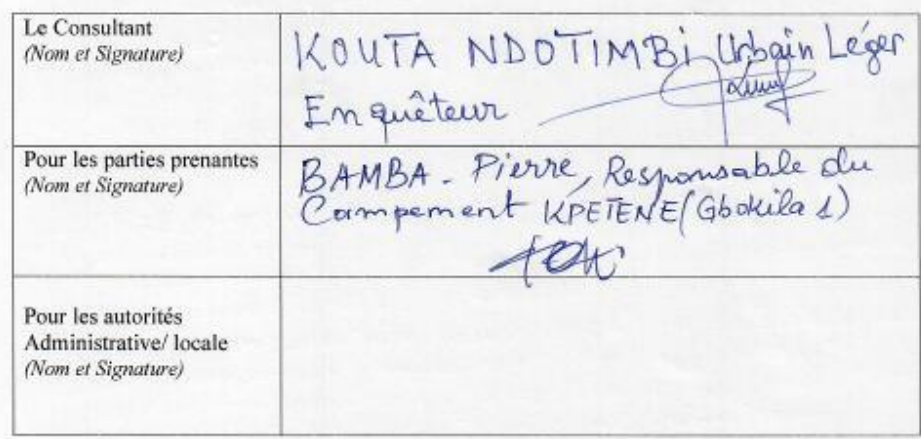 Le Consultant
(Nom et Signature)
KOUTA NDOTIMBi Urbain Léger
Enquêteur
Pour les parties prenantes
(Nom et Signature)
BAMBA - Pierre, Responsable du
Campement KPETENE (Gbokila 1)
Pour les autorités
Administrative/ locale
(Nom et Signature)